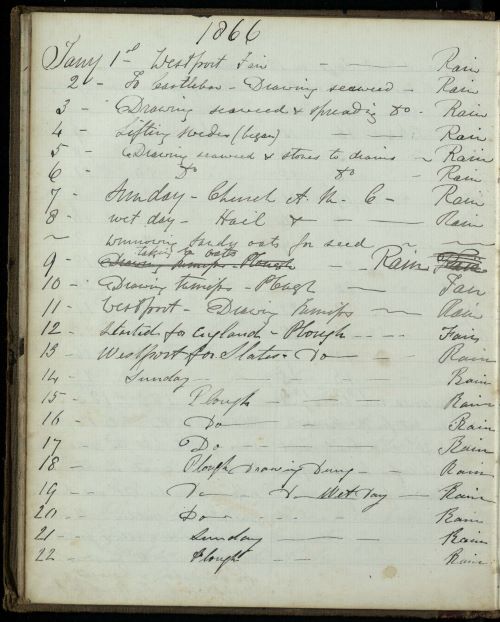 1866
Jany 1st Westport Fair - — Rain
2 - To Castlebar - Drawing seaweed - Rain
3 - Drawing seaweed & spreading Do - Rain
4 - Lifting swedes (began) - — Rain
5 - Drawing seaweed & stones to drains - Rain
6 - Do Do - Rain
7 - Sunday - Church A. M. C - Rain
8 - wet day - Hail & - — Rain
~ winnowing Sandy oats for seed ~ ~
taking oats
9 - Drawing turnips - Plough - Rain Fair
10 - Drawing turnips - Plough — Fair
11 - Westport - Drawing Turnips — Rain
12 - started for England - Plough - - - Fair
13 - Westport for Slates - Do - — Rain
14 - Sunday - — - Rain
15 - Plough - — - Rain
16 - Do — - Rain
17 - Do - - - - Rain
18 - Plough Drawing Dung - - Rain
19 - - Do - Do - Wet Day - Rain
20 - Do - - - - Rain
21 - Sunday — — Rain
22 - Plough - — Rain